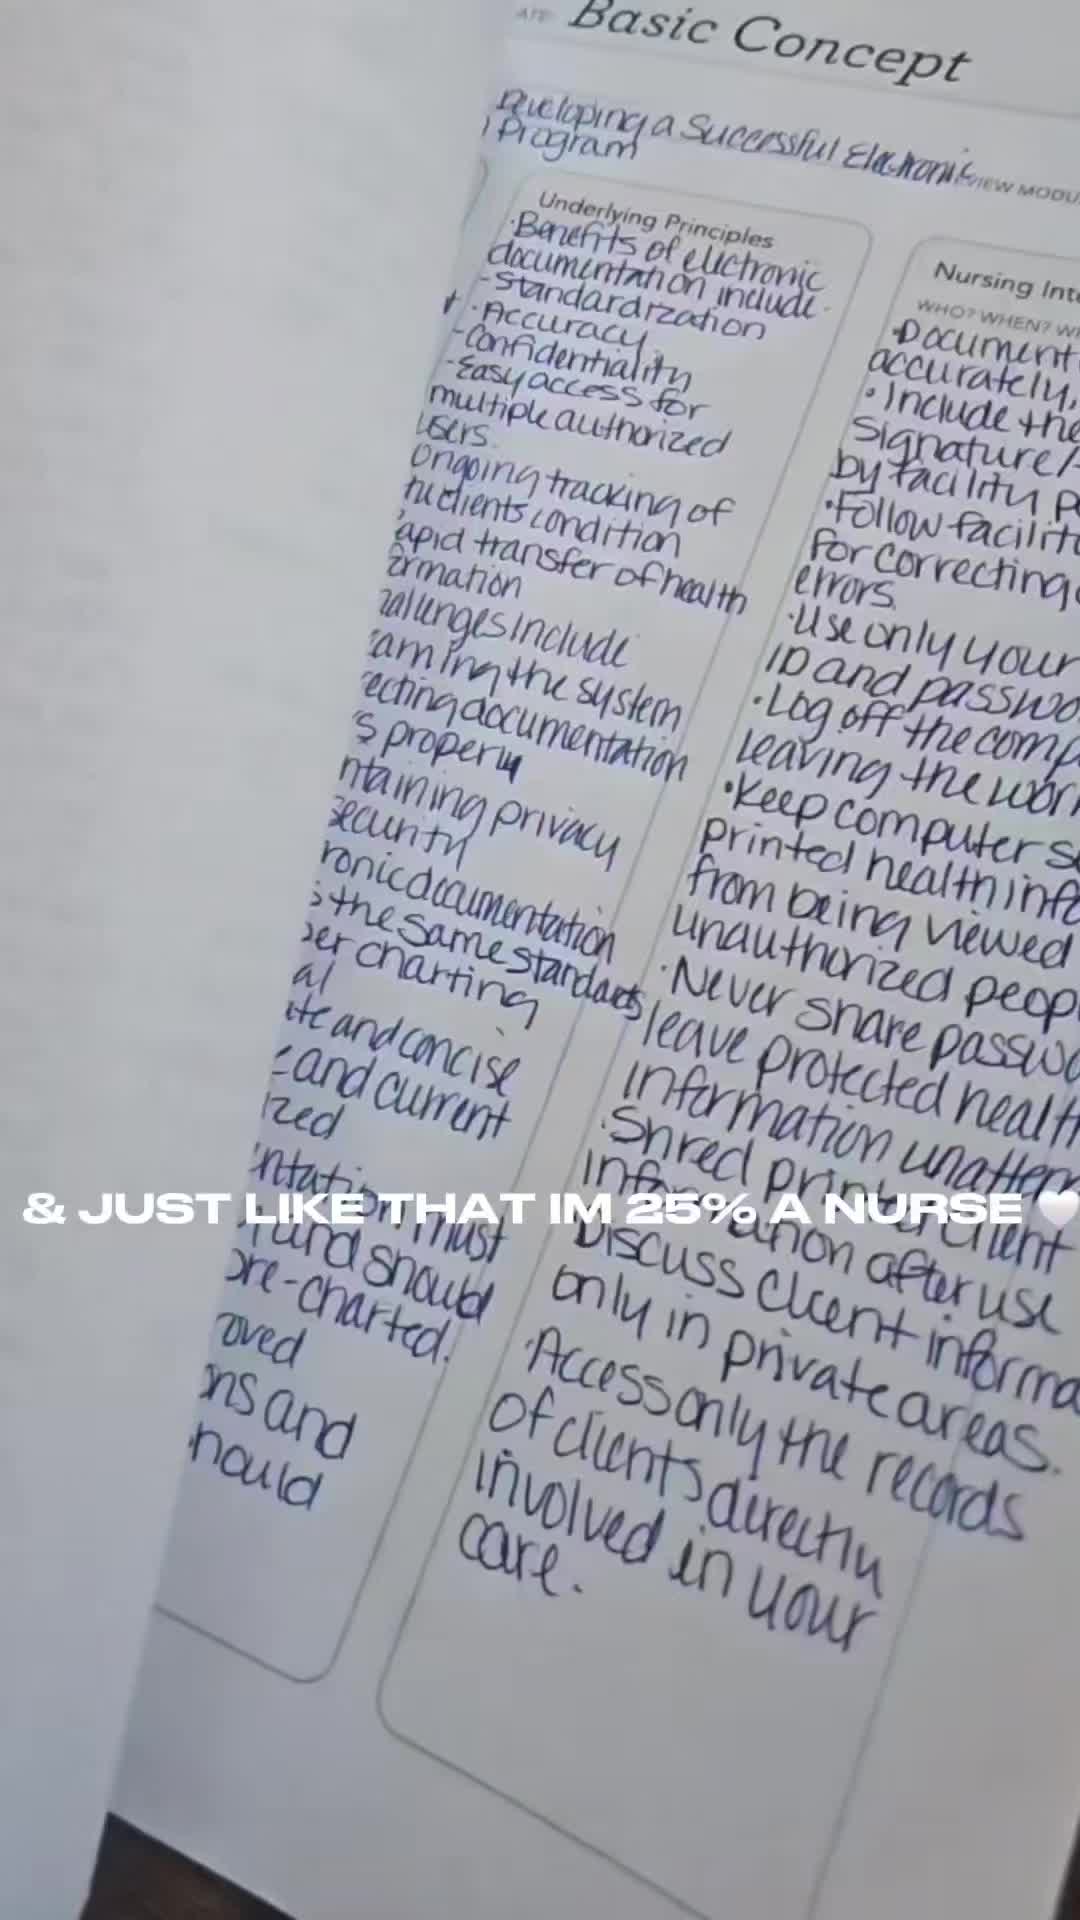 Basic Concept
Developing a Successful Electronic
Program
VIEW MODU
Underlying Principles
·Benefits of electronic
documentation include.
-Standardization
·Accuracy
-Confidentiality
-Easy access for
multiple authorized
users.
Ongoing tracking of
clients condition
apid transfer of health
ormation
allenges include
arning the system
ecting documentation
's properly
ntaining privacy
security
ronic documentation
s the same standards
per charting
al
ate and concise
and current
ized
ntation must
and should
pre-charted.
oved
ons and
hould
Nursing Int
WHO? WHEN? W
·Document
accurately,
·Include the
signature/
by facility p
·Follow facilit
for correcting
errors.
·Use only your
ID and passwo
·Log off the comp
leaving the wor
·Keep computer s
printed health info
from being viewed
unauthorized peop
·Never share passwo
leave protected healt
information unatten
·Shred printed client
information after use
Discuss client informa
only in private areas.
·Access only the records
of clients directly
involved in your
care.
& JUST LIKE THAT IM 25% A NURSE 🤍